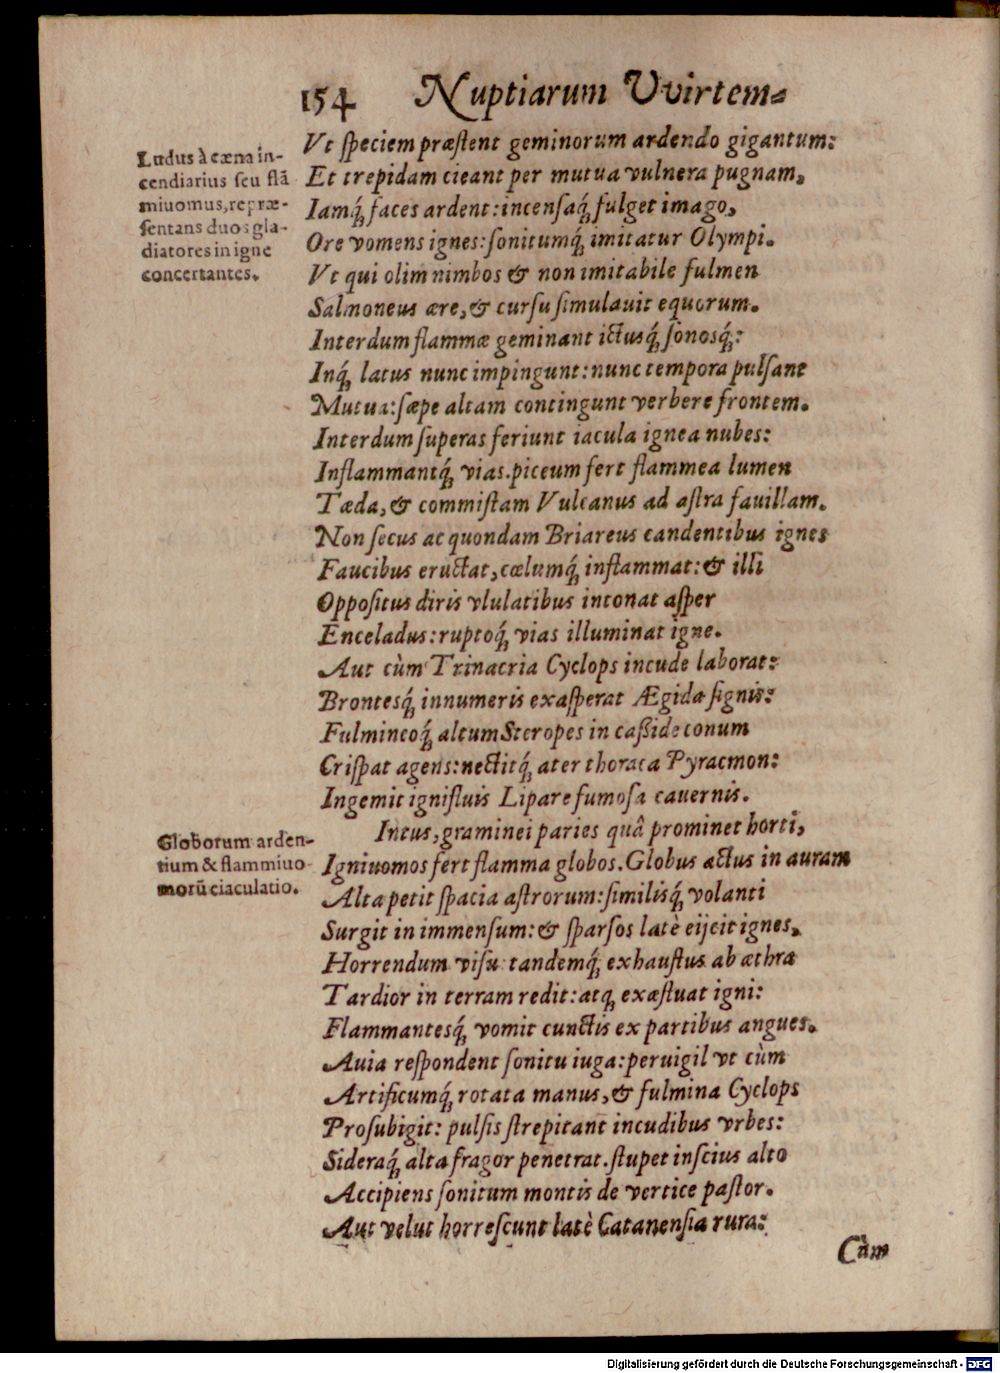 154 Nuptiarum Vvirtem-
Vt ſpeciem præſtent geminorum ardendo gigantum:
Ludus à cæna in-
cendiarius ſeu flā
miuomus, repræ-
ſentans duos gla-
diatores in igne
concertantes.
Et trepidam cieant per mutua vulnera pugnam,
Iamq́; faces ardent: incenſaq́; fulget imago,
Ore vomens ignes: ſonitumq́; imitatur Olympi.
Vt qui olim nimbos & non imitabile fulmen
Salmoneus ære, & curſu ſimulauit equorum.
Interdum flammæ geminant ictusq́; ſonosq́;:
Inq́; latus nunc impingunt: nunc tempora pulſant
Mutua: ſæpe altam contingunt verbere frontem.
Interdum ſuperas feriunt iacula ignea nubes:
Inflammantq́; vias. piceum fert flammea lumen
Tæda, & commiſtam Vulcanus ad aſtra fauillam.
Non ſecus ac quondam Briareus candentibus ignes
Faucibus eructat, cælumq́; inflammat: & illi
Oppoſitus diris vlulatibus intonat aſper
Enceladus: ruptoq́; vias illuminat igne.
Aut cùm Trinacria Cyclops incude laborat:
Brontesq́; innumeris exaſperat Ægida ſignis:
Fulmineoq́; altum Steropes in caßide conum
Criſpat agens: nectitq́; ater thoraca Pyracmon:
Ingemit ignifluis Lipare fumoſa cauernis.
Intus, graminei paries quâ prominet horti,
Globorum arden-
tium & flammiuo
morū eiaculatio.
Igniuomos fert flamma globos. Globus actus in auram
Alta petit ſpacia aſtrorum: ſimilisq́; volanti
Surgit in immenſum: & ſparſos latè eijcit ignes,
Horrendum viſu: tandemq́; exhauſtus ab æthra
Tardior in terram redit: atq; exæſtuat igni:
Flammantesq́; vomit cunctis ex partibus angues.
Auia reſpondent ſonitu iuga: peruigil vt cùm
Artificumq́; rotata manus, & fulmina Cyclops
Proſubigit: pulſis ſtrepitant incudibus vrbes:
Sideraq́; alta fragor penetrat. ſtupet inſcius alto
Accipiens ſonitum montis de vertice paſtor.
Aut velut horreſcunt latè Catanenſia rura:
Cùm
Digitalisierung gefördert durch die Deutsche Forschungsgemeinschaft - DFG